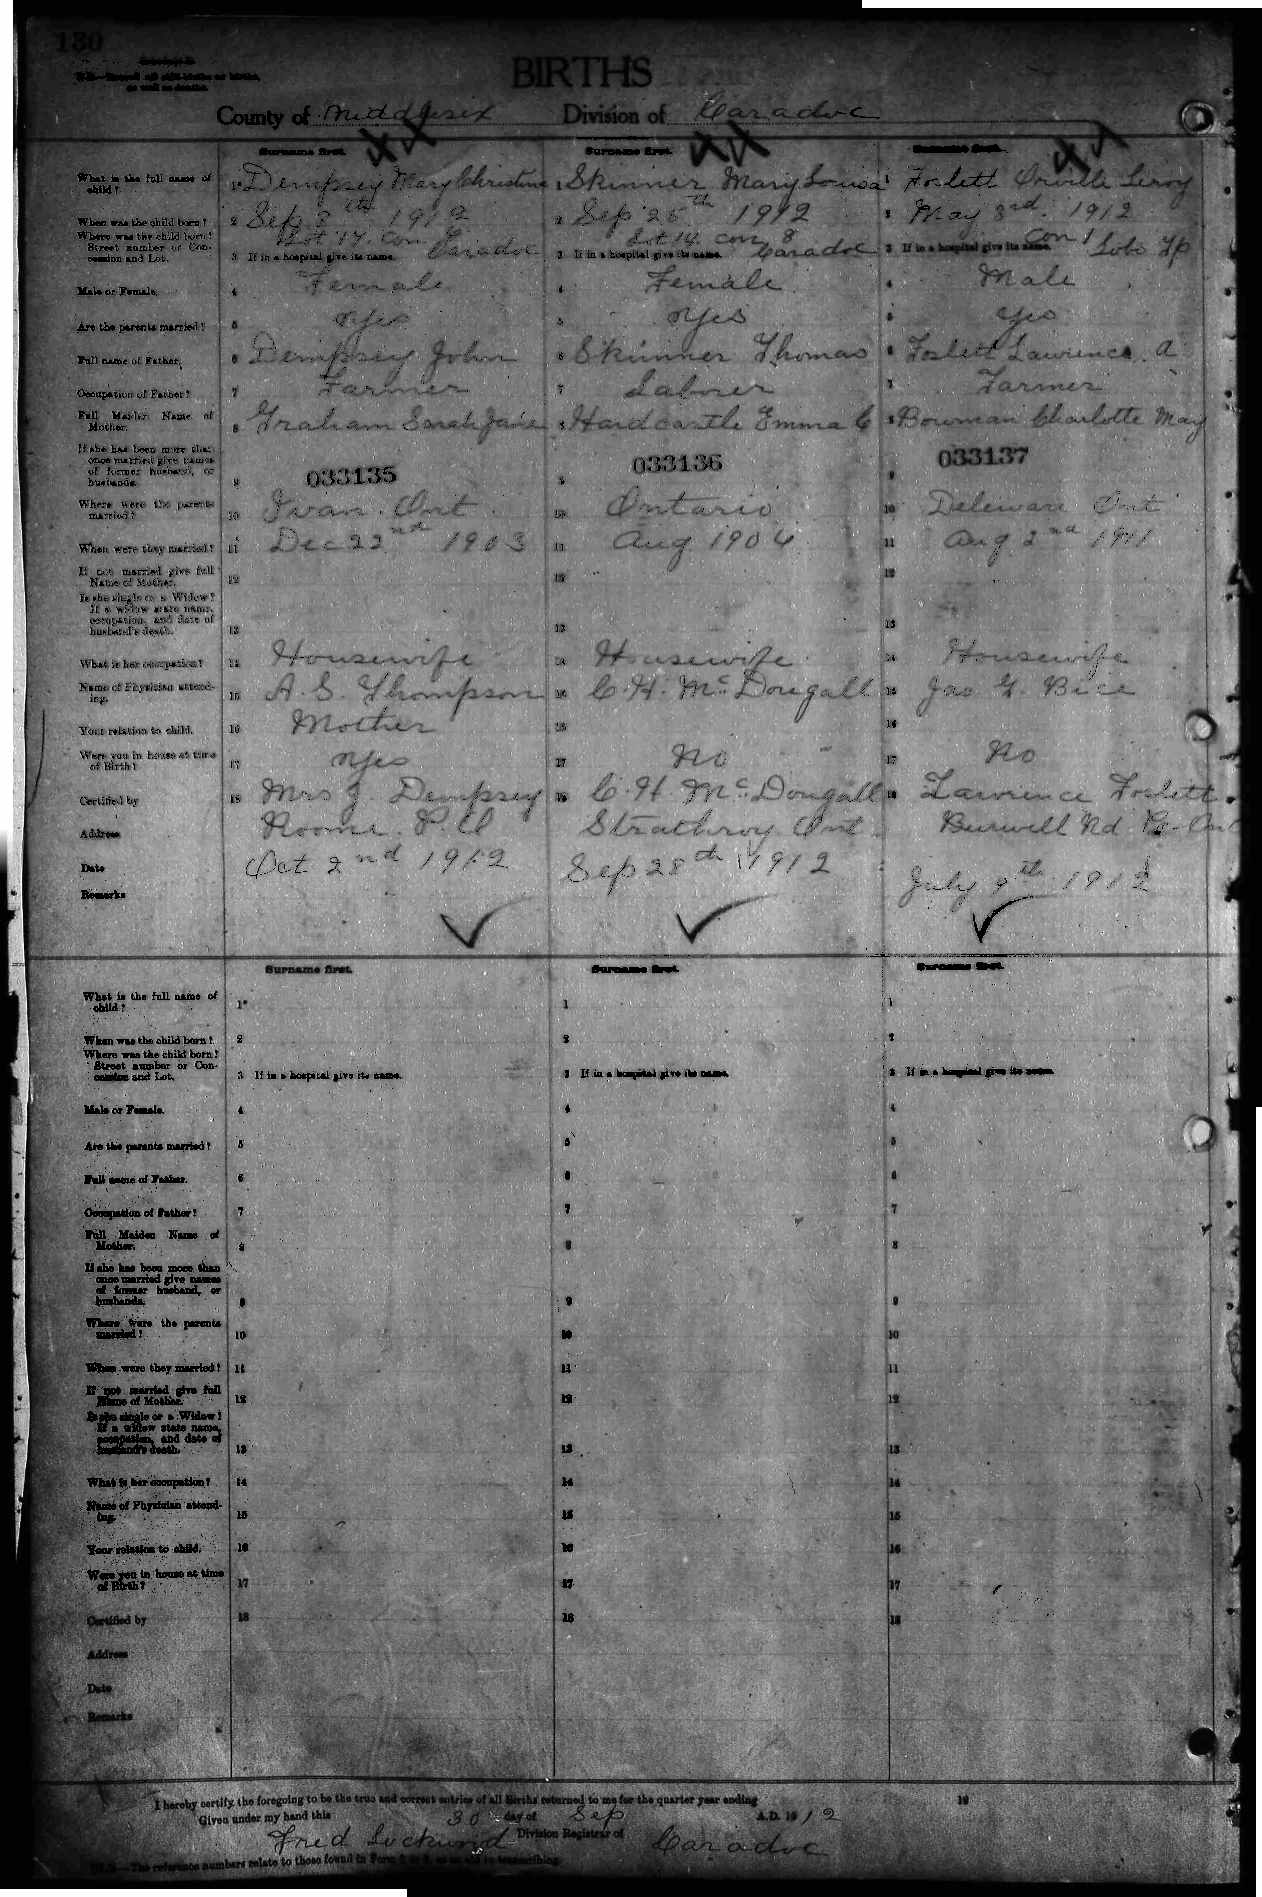 130
BIRTHS
County of Middlesix Division of Caradoc
Surname first. Surname first. Surname first.
What is the full name of child? 1 Dempsey Mary Christina 1 Skinner Mary Louisa 1 Foslett Orville Leroy
When was the child born? 2 Sep 8th 1912 2 Sep 25th 1912 2 May 3rd 1912
Where was the child born? Street number of Concession and Lot. 3 If in a hospital give its name. Lot 17 Con 7 Caradoc 3 If in a hospital give its name. Lot 14 con 8 Caradoc 3 If in a hospital give its name. Con 1 Lobo Tp
Male or Female. 4 Female 4 Female 4 Male
Are the parents married? 5 Yes 5 Yes 5 Yes
Full name of Father. 6 Dempsey John 6 Skinner Thomas 6 Foslett Lawrence A
Occupation of Father? 7 Farmer 7 Laborer 7 Farmer
Full Maiden Name of Mother. 8 Graham Sarah Jane 8 Hardcastle Emma C 8 Bowman Charlotte May
If she has been more than once married give names of former husband, or husbands. 9 033135 9 033136 9 033137
Where were the parents married? 10 Ivan Ont 10 Ontario 10 Deleware Ont
When were they married? 11 Dec 22nd 1903 11 Aug 1904 11 Aug 2nd 1911
If not married give full Name of Mother. 12 12 12
Is she single or a Widow? If a widow state name, occupation, and date of husband's death. 13 13 13
What is her occupation? 14 Housewife 14 Housewife 14 Housewife
Name of Physician attending. 15 A. S. Thompson 15 C. H. McDougall 15 Jas G. Bice
Your relation to child. 16 Mother 16 16
Were you in house at time of Birth? 17 Yes 17 No 17 No
Certified by 18 Mrs J. Dempsey 18 C. H. McDougall 18 Lawrence Foslett
Address Roome P.O Strathroy Ont Burwell Rd Po-Ont
Date Oct 2nd 1912 Sep 28th 1912 July 9th 1912
Remarks
Surname first. Surname first. Surname first.
What is the full name of child? 1 1 1
When was the child born? 2 2 2
Where was the child born? Street number or Concession and Lot. 3 If in a hospital give its name. 3 If in a hospital give its name. 3 If in a hospital give its name.
Male or Female. 4 4 4
Are the parents married? 5 5 5
Full name of Father. 6 6 6
Occupation of Father? 7 7 7
Full Maiden Name of Mother. 8 8 8
If she has been more than once married give names of former husband, or husbands. 9 9 9
Where were the parents married? 10 10 10
When were they married? 11 11 11
If not married give full Name of Mother. 12 12 12
Is she single or a Widow? If a widow state name, occupation, and date of husband's death. 13 13 13
What is her occupation? 14 14 14
Name of Physician attending. 15 15 15
Your relation to child. 16 16 16
Were you in house at time of Birth? 17 17 17
Certified by 18 18 18
Address
Date
Remarks
I hereby certify the foregoing to be the true and correct entries of all Births returned to me for the quarter year ending 19
Given under my hand this 30 day of Sep A.D. 1912
Fred Lockwood Division Registrar of Caradoc
The reference numbers relate to those found in Form